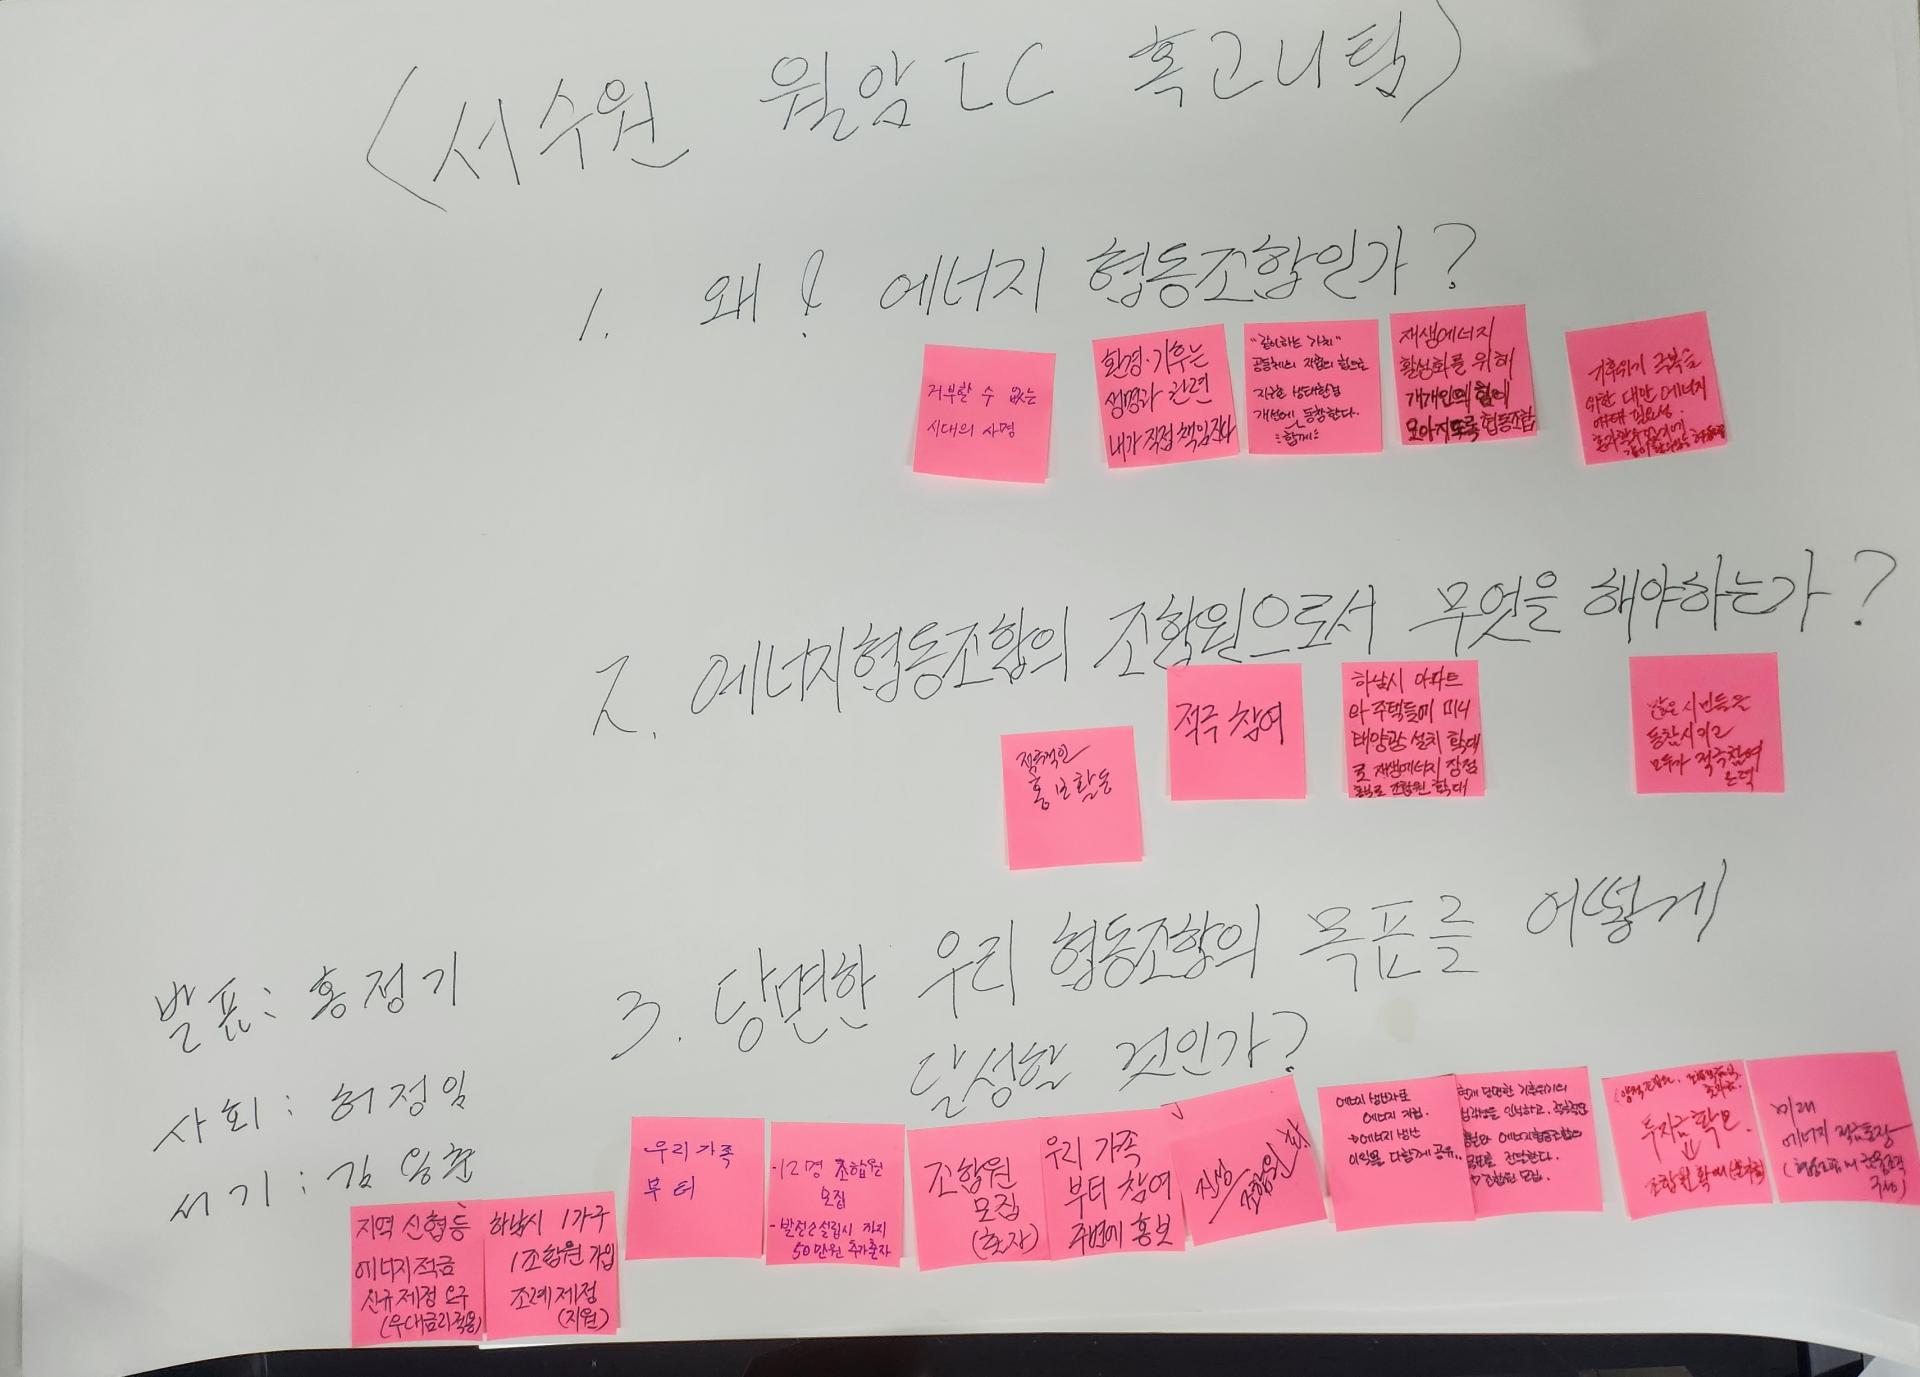 <서수원 월암IC 혹고니팀>
1. 왜? 에너지 협동조합인가?
거부할 수 없는
시대의 사명
환경·기후는
생명과 관련
내가 직접 책임진다
"같이하는 가치"
공동체의 지합의 힘으로
지구환 생태환경
개선에 동참한다.
함께
재생에너지
활성화를 위해
개개인의 힘이
모아지도록 협동조합
기후위기 극복을
위한 대안 에너지
필요성.
2. 에너지협동조합의 조합원으로서 무엇을 해야하는가?
적극적인
홍보활동
적극 참여
하남시 아파트
와 주택들에 미니
태양광 설치 확대
로 재생에너지 장점
홍보로 조합원 확대
많은 시민들을
동참시키고
모두가 적극참여
노력
3. 당면한 우리 협동조합의 목표를 어떻게
달성할 것인가?
발표: 홍정기
사회: 허정임
서기: 김
지역 신협등
에너지적금
신규제정 요구
(우대금리적용)
하남시 1가구
1조합원 가입
조례제정
(지원)
우리 가족
부터
-12명 조합원
모집
-발전소설립시 까지
50만원 추가출자
조합원
모집
(출자)
우리 가족
부터 참여
주변에 홍보
조합원
에너지 생산자로
에너지 자립.
→에너지 생산
이익을 다함께 공유.
현재 당면한 기후위기의
심각성을 인식하고,
에너지협동조합의
목표를 전달한다.
→조합원 모집.
투자금 확보.
조합원 확대
미래
에너지 적금통장